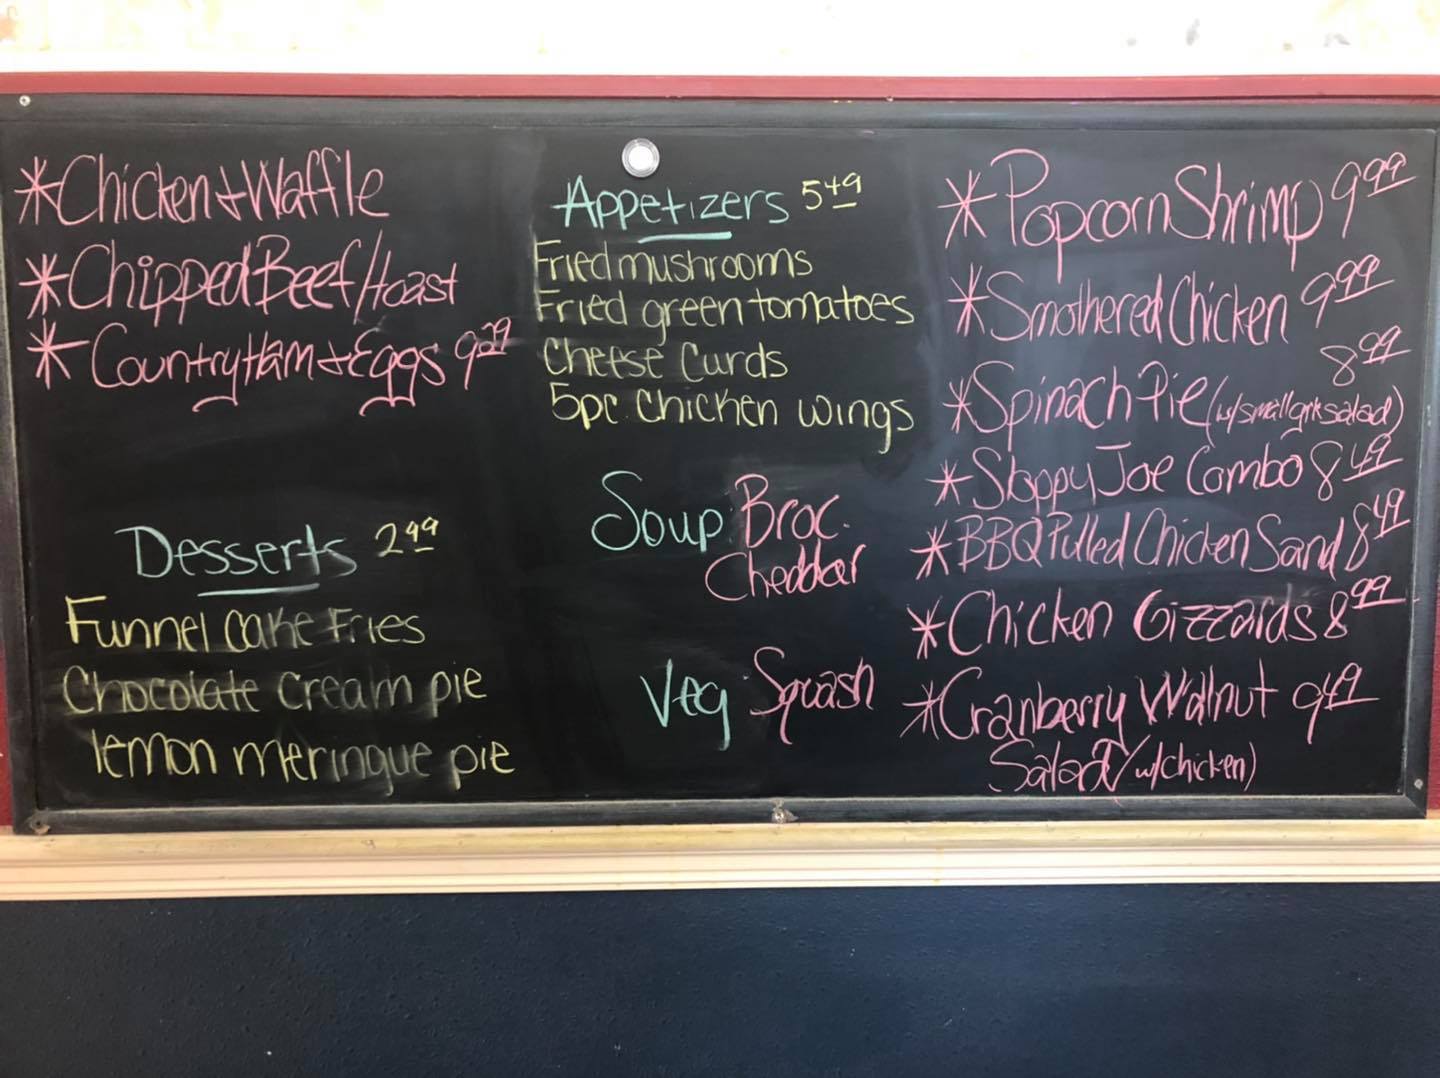 *Chicken + Waffle
*Chipped Beef/toast
*Country Ham + Eggs 9.29
Desserts 2.99
Funnel cake Fries
Chocolate cream pie
lemon meringue pie
Appetizers 5.49
Fried mushrooms
Fried green tomatoes
Cheese Curds
5pc. chicken wings
Soup Broc.
Cheddar
Veg Squash
*Popcorn Shrimp 9.99
*Smothered Chicken 9.99
*Spinach Pie (w/small grk salad) 8.99
*Sloppy Joe Combo 8.49
*BBQ Pulled Chicken Sand 8.49
*Chicken Gizzards 8.99
*Cranberry Walnut 9.49
Salad (w/chicken)